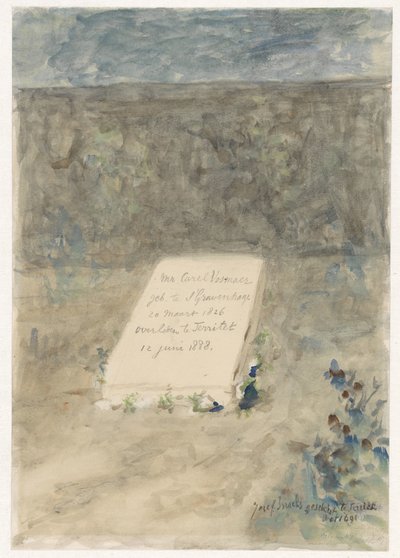 Mr Carel Vosmaer
geb. te S Gravenhage
20 Maart 1826
overleden te Territet
12 juni 1888.
Jozef Israëls geschilderd te Territet